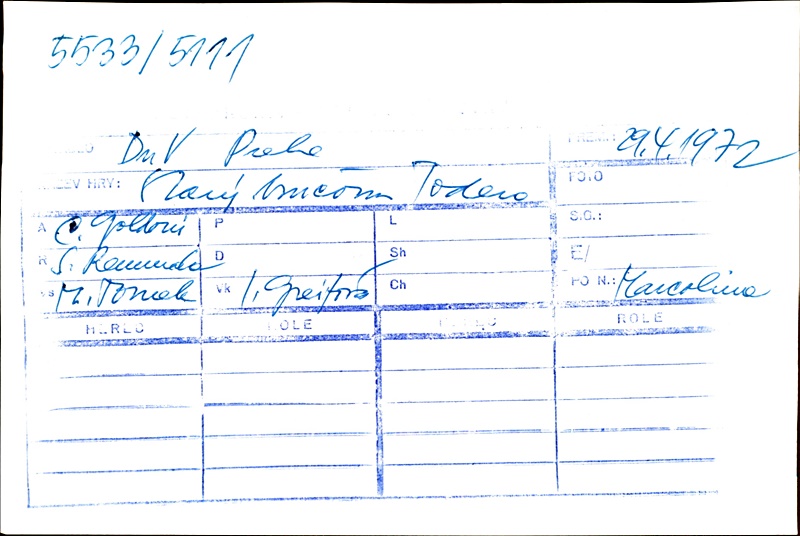 5533/5111
DnV Praha PREM.: 29.4.1972
NÁZEV HRY: Starý bručoun Todero FOTO
A C. Goldoni P L S.G.:
R S. Remunda D Sh E/
Vs M. Tomek Vk I. Greifová Ch PO N.: Marcolina
HEREC ROLE HEREC ROLE